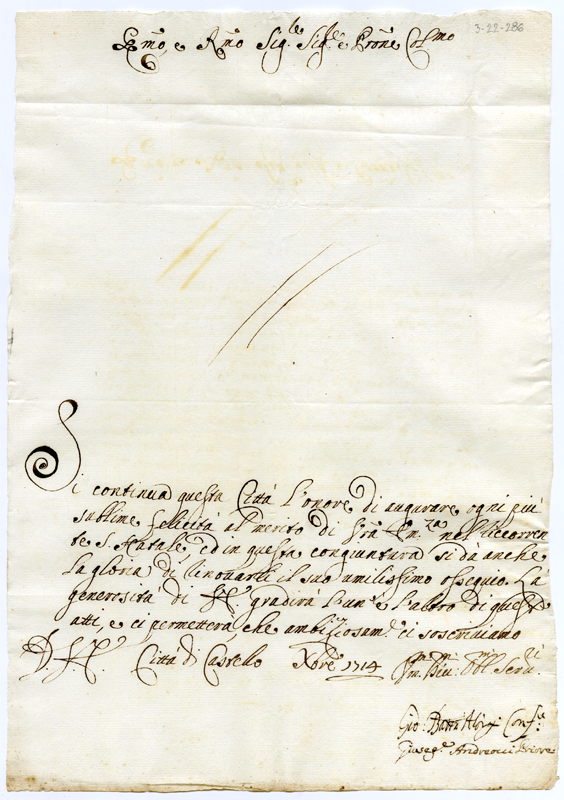 3-22-286
Em̃o, e Rm̃o Sig.re Sig.re e Prõne Col.mo
Si continua questa Città l'onore di augurare ogni più
sublime felicità al merito di Vrã Em.za nel ricorren
te S. Natale, ed in questa congiuntura si da anche
la gloria di rinovarli il suo umilissimo ossequio. La
generosità di gradirà l'un' e l'altro di questi
atti, e ci permetterà, che ambiziosam.te ci soscriviamo
Città di Castello Xbrẽ 1714
Gio: Batta Con
Andreocci Priore